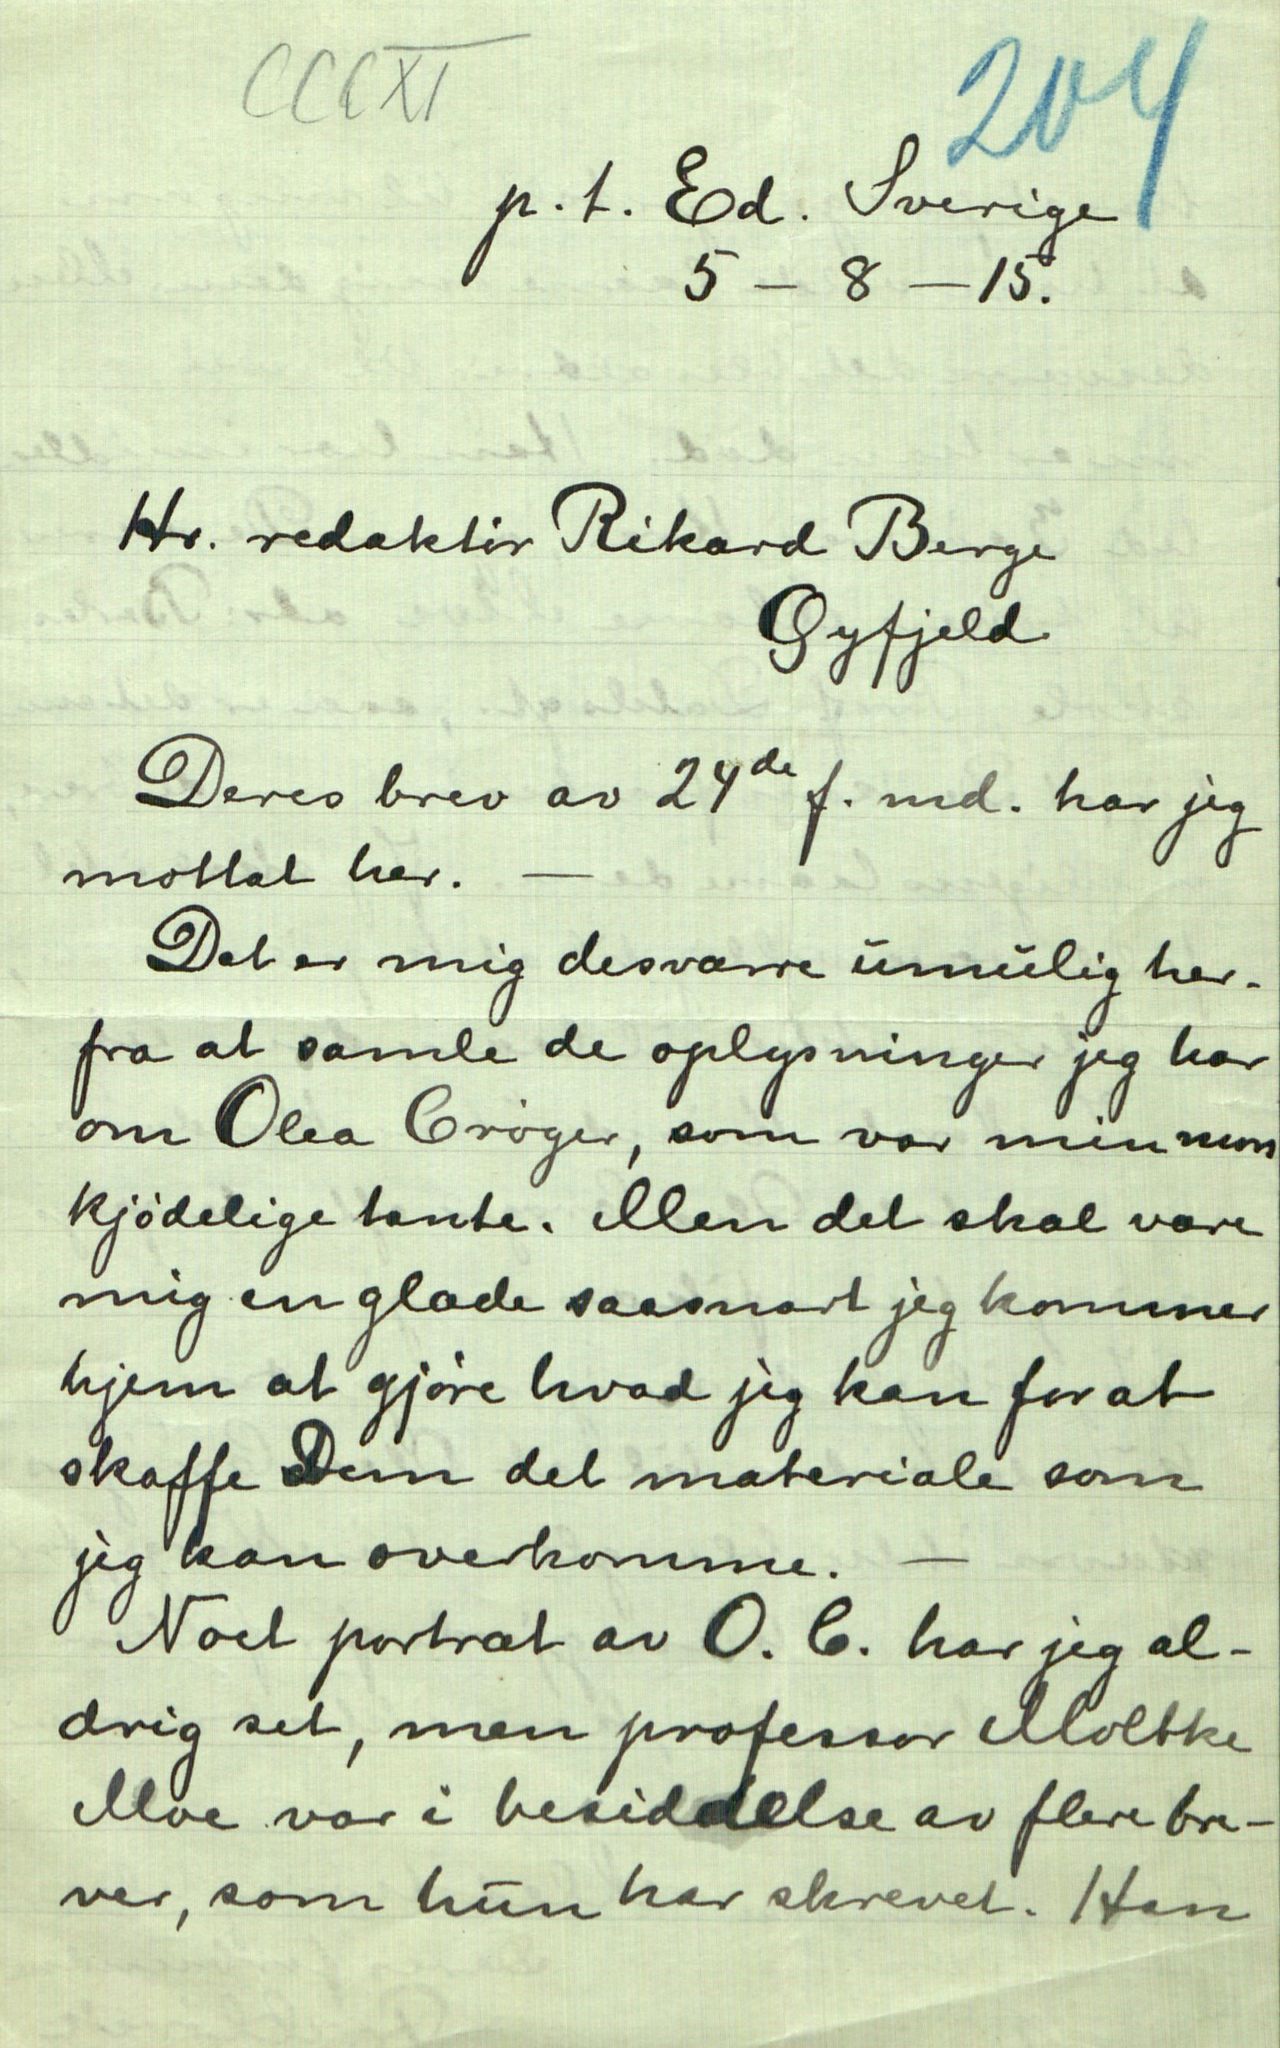 CCCXI
204
p. t. Ed. Sverige
5 – 8 – 15.
Hr. redaktör Rikard Berge
Öyfjeld
Deres brev av 24de f. md. har jeg
mottat her. —
Det er mig desværre umulig her-
fra at samle de oplysninger jeg har
om Olea Cröger, som var min mors
kjödelige tante. Men det skal være
mig en glæde saasnart jeg kommer
hjem at gjöre hvad jeg kan for at
skaffe Dem det materiale som
jeg kan overkomme. —
Noet portræt av O. C. har jeg al-
drig set, men professor Moltke
Moe var i besiddelse av flere bre-
ver, som hun har skrevet. Han